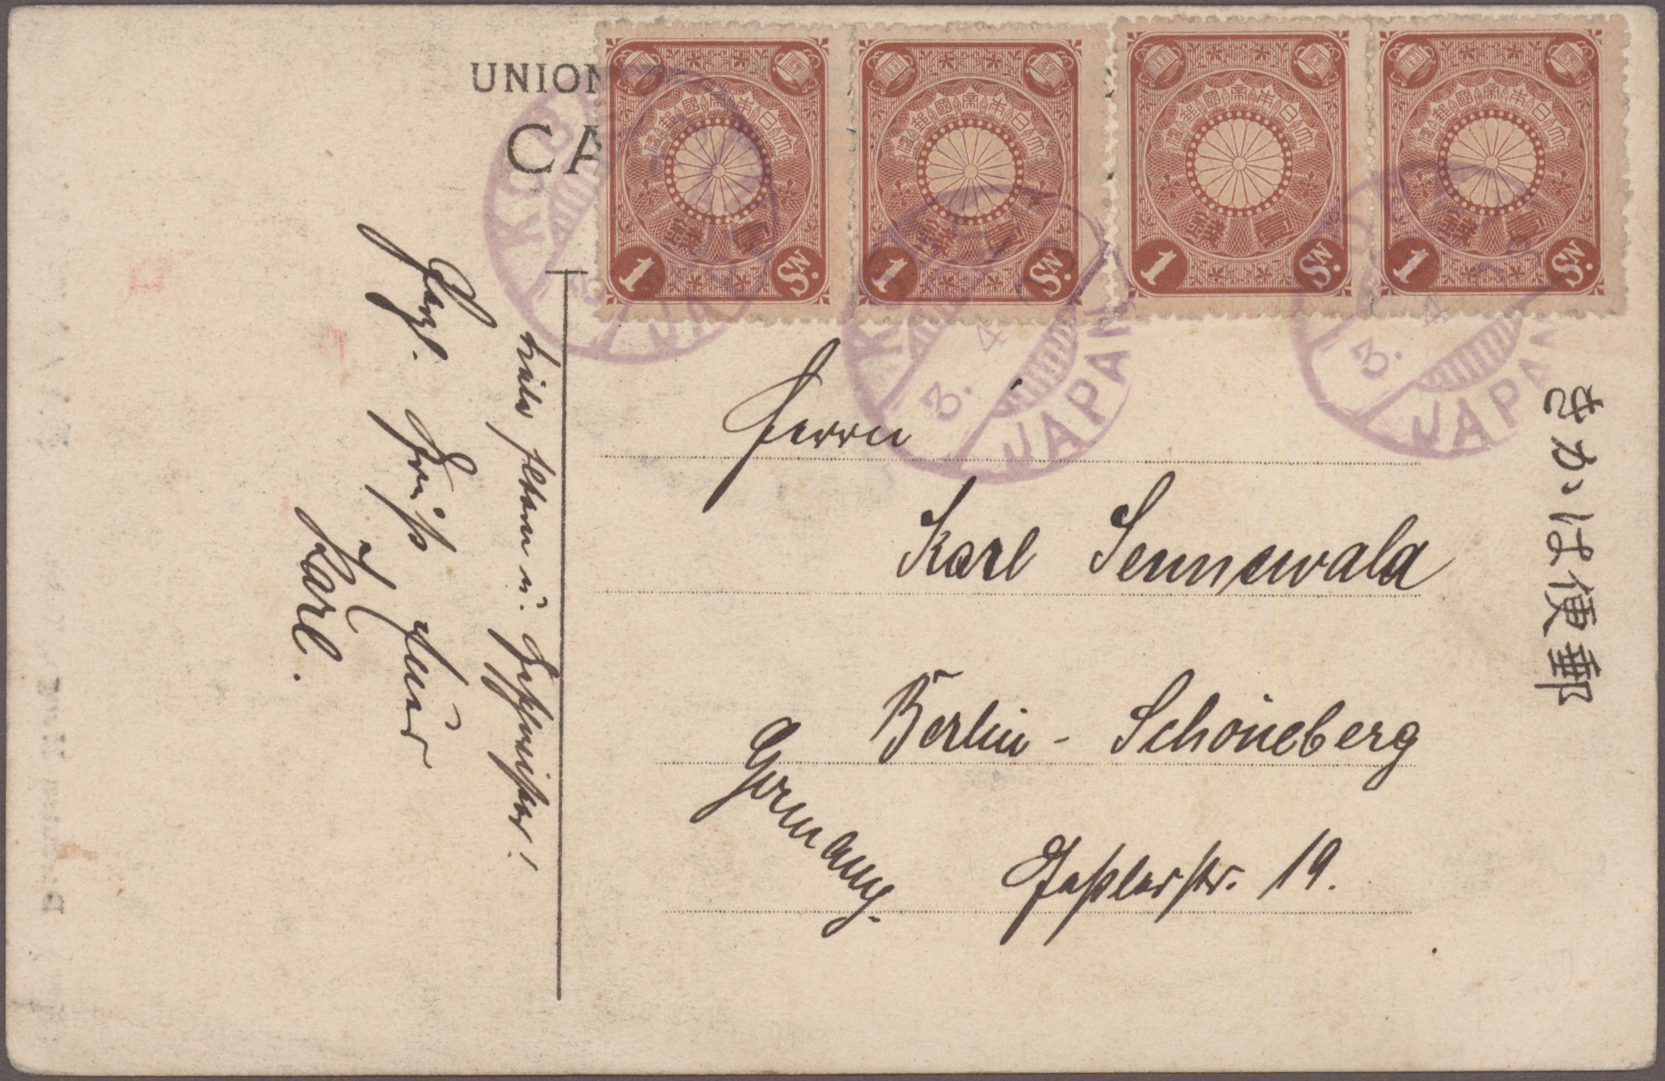 UNION
CA
大日本帝國郵便
壹錢
1 Sn.
大日本帝國郵便
壹錢
1 Sn.
大日本帝國郵便
壹錢
1 Sn.
大日本帝國郵便
壹錢
1 Sn.
KOBE
JAPAN
3. 4
JAPAN
3. 4
JAPAN
郵便はがき
Liebe Eltern u. Geschwister!
Herzl. Gruß
Euer
Karl.
Herrn
Karl Sennewald
Berlin - Schöneberg
19.
Germany.